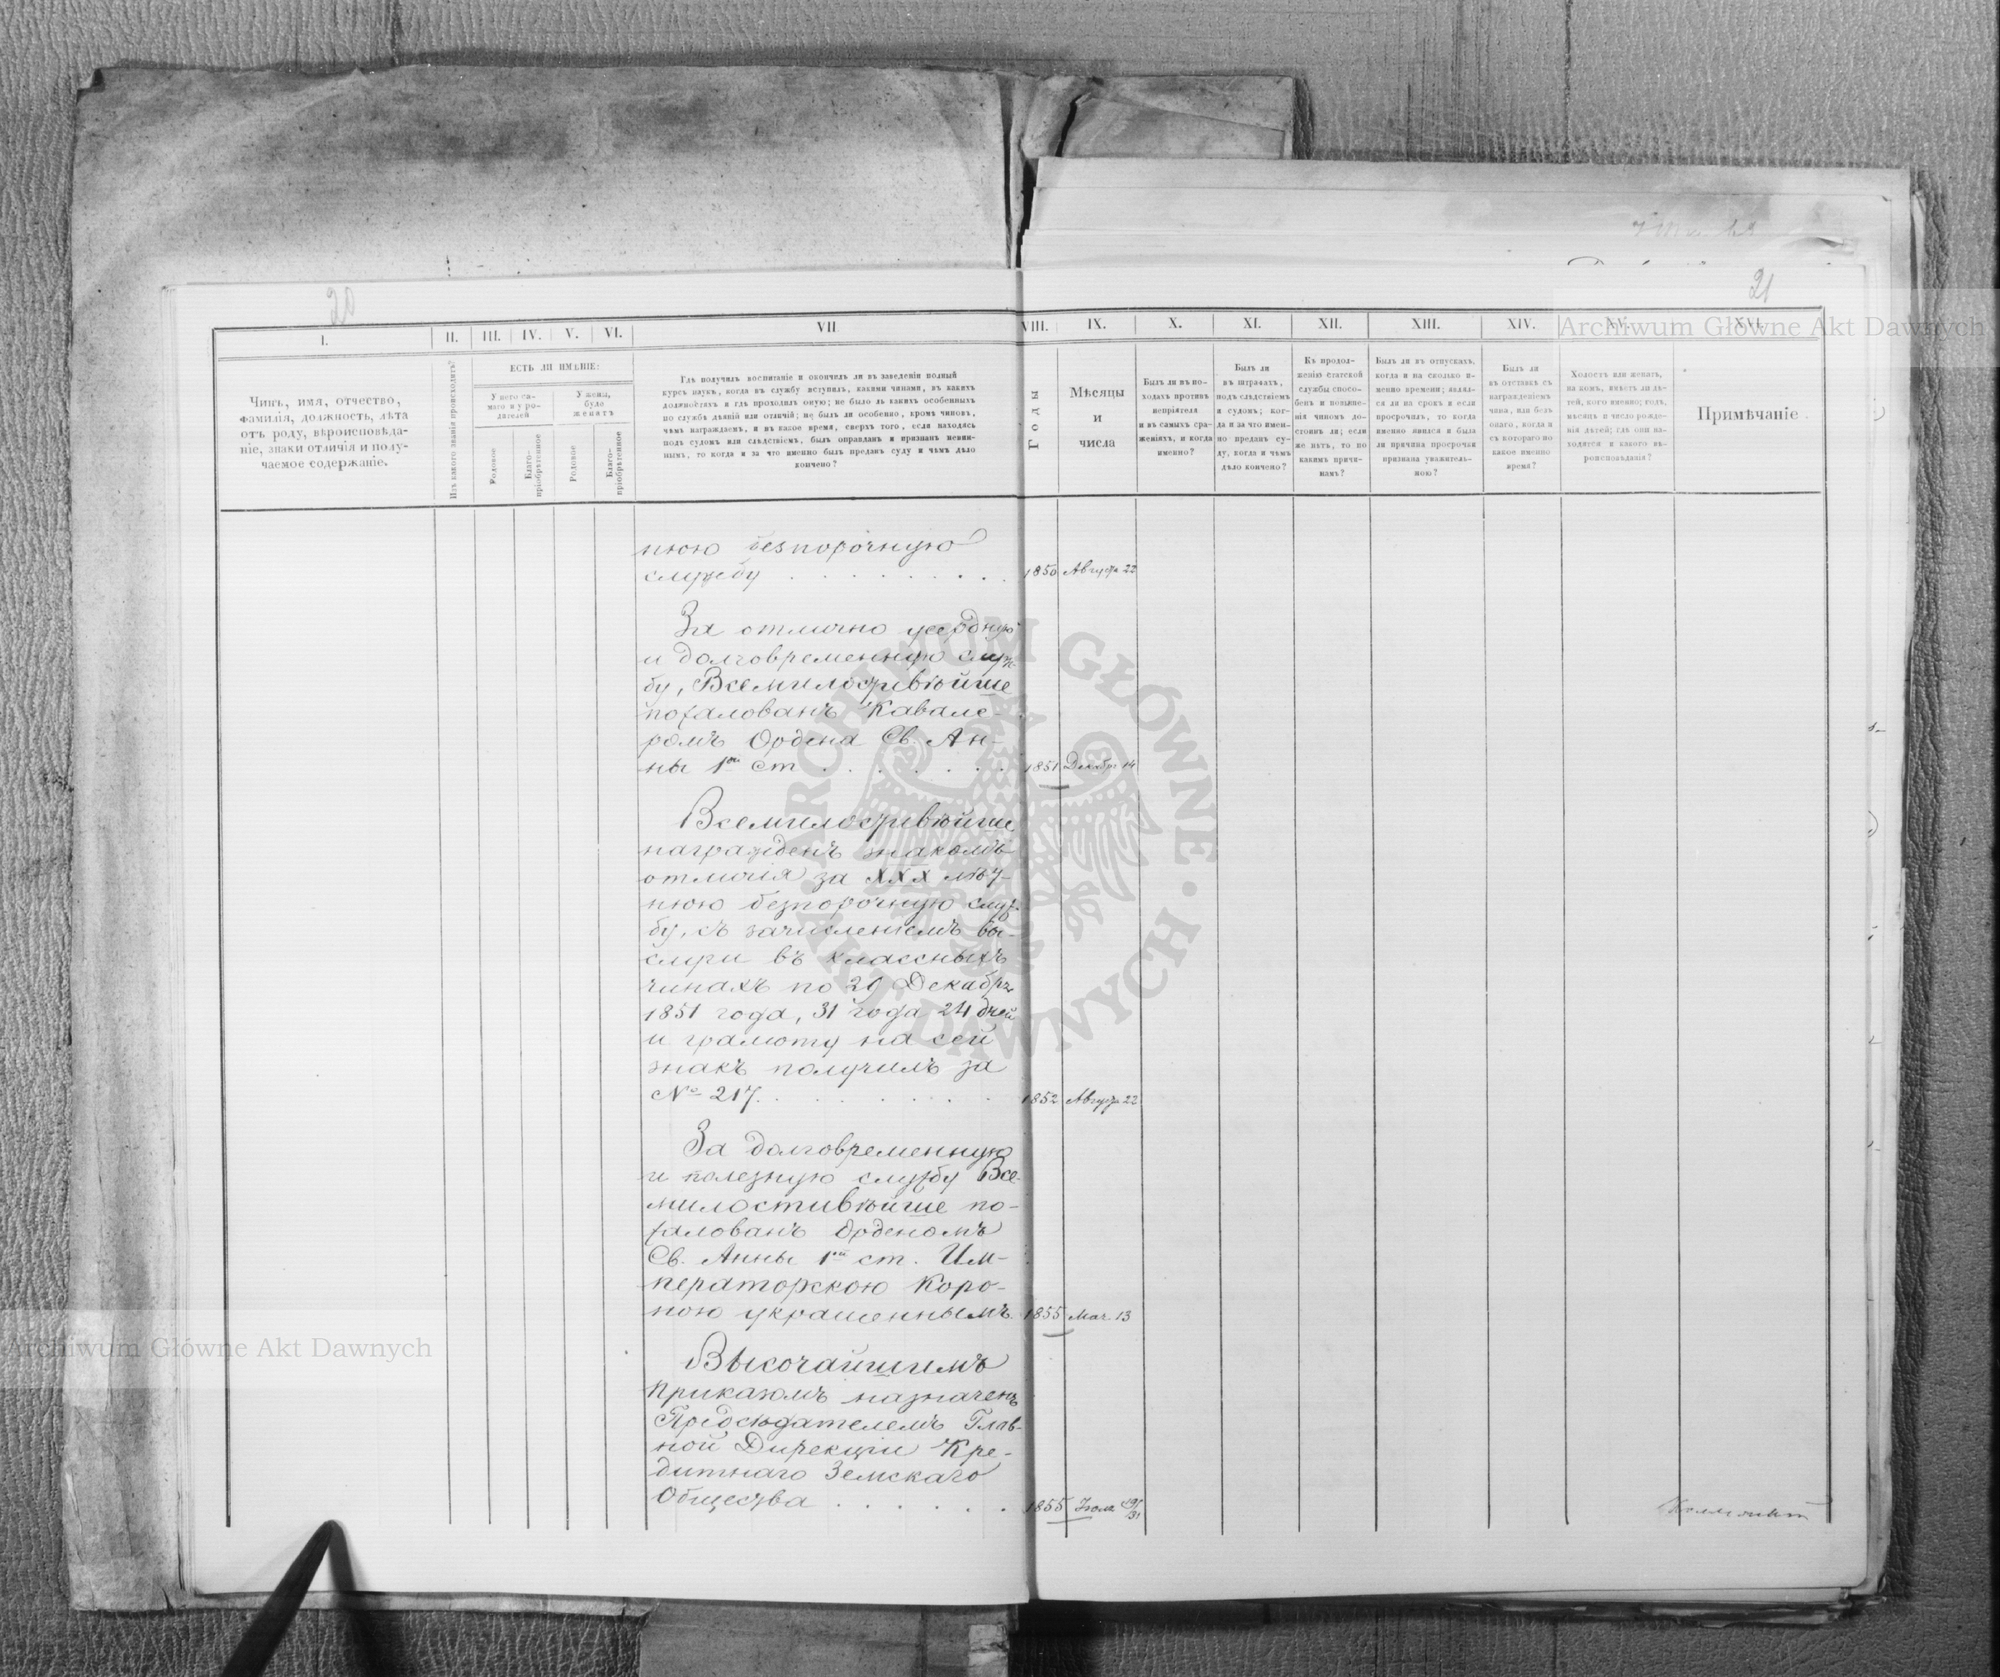 20
21
I.
II.
III.
IV.
V.
VI.
VII
VIII.
IX.
X.
XI.
XII.
XIII.
XIV.
XV.
XVI.
Archiwum Główne Akt Dawnych
Чинъ, имя, отчество,
фамилія, должность, лѣта
отъ роду, вѣроисповѣда-
ніе, знаки отличія и полу-
чаемое содержаніе.
Изъ какого званія происходитъ?
ЕСТЬ ЛИ ИМѢНІЕ:
У него са-
маго и у ро-
дителей
У жены,
буде
женатъ
Родовое
Благо-
пріобрѣтенное
Родовое
Благо-
пріобрѣтенное
Гдѣ получилъ воспитаніе и окончилъ ли въ заведеніи полный
курсъ наукъ, когда въ службу вступилъ, какими чинами, въ какихъ
должностяхъ и гдѣ проходилъ оную; не было ль какихъ особенныхъ
по службѣ дѣяній или отличій; не былъ ли особенно, кромѣ чиновъ,
чѣмъ награждаемъ, и въ какое время, сверхъ того, если находясь
подъ судомъ или слѣдствіемъ, былъ оправданъ и признанъ невин-
нымъ, то когда и за что именно былъ преданъ суду и чѣмъ дѣло
кончено?
Годы
Мѣсяцы
и
числа
Былъ ли въ по-
ходахъ противъ
непріятеля
и въ самыхъ сра-
женіяхъ, и когда
именно?
Былъ ли
въ штрафахъ,
подъ слѣдствіемъ
и судомъ; ког-
да и за что имен-
но преданъ су-
ду, когда и чѣмъ
дѣло кончено?
Къ продол-
женію статской
службы спосо-
бенъ и повыше-
нія чиномъ до-
стоинъ ли; если
же нѣтъ, то по
какимъ причи-
намъ?
Былъ ли въ отпускахъ,
когда и на сколько и-
менно времени; являл-
ся ли на срокъ и если
просрочилъ, то когда
именно явился и была
ли причина просрочки
признана уважитель-
ною?
Былъ ли
въ отставкѣ съ
награжденіемъ
чина, или безъ
онаго, когда и
съ котораго по
какое именно
время?
Холостъ или женатъ,
на комъ, имѣетъ ли дѣ-
тей, кого именно; годъ,
мѣсяцъ и число рожде-
нія дѣтей; гдѣ они на-
ходятся и какого вѣ-
роисповѣданія?
Примѣчаніе
нюю безпорочную
службу . . . . . . . . . 1850 Августа 22
За отлично усердную
и долговременную служ-
бу, Всемилостивѣйше
пожалованъ Кавале-
ромъ Ордена Св. Ан-
ны 1ой ст . . . . . . . 1851 Декабря 14
Всемилостивѣйше
награжденъ знакомъ
отличія за XXX лѣт-
нюю безпорочную служ-
бу, съ зачисленіемъ вы-
слуги въ классныхъ
чинахъ по 29 Декабря
1851 года, 31 года 24 дней
и грамоту на сей
знакъ получилъ за
№ 217. . . . . . . . . 1852 Августа 22
За долговременную
и полезную службу Все-
милостивѣйше по-
жалованъ Орденомъ
Св. Анны 1ой ст. Им-
ператорскою Коро-
ною украшеннымъ 1855 Мая 13
Высочайшимъ
Приказомъ назначенъ
Предсѣдателемъ Глав-
ной Дирекціи Кре-
дитнаго Земскаго
Общества . . . . . . 1855 Іюля 19/31
Archiwum Główne Akt Dawnych
ARCHIWUM GŁÓWNE · AKT DAWNYCH ·